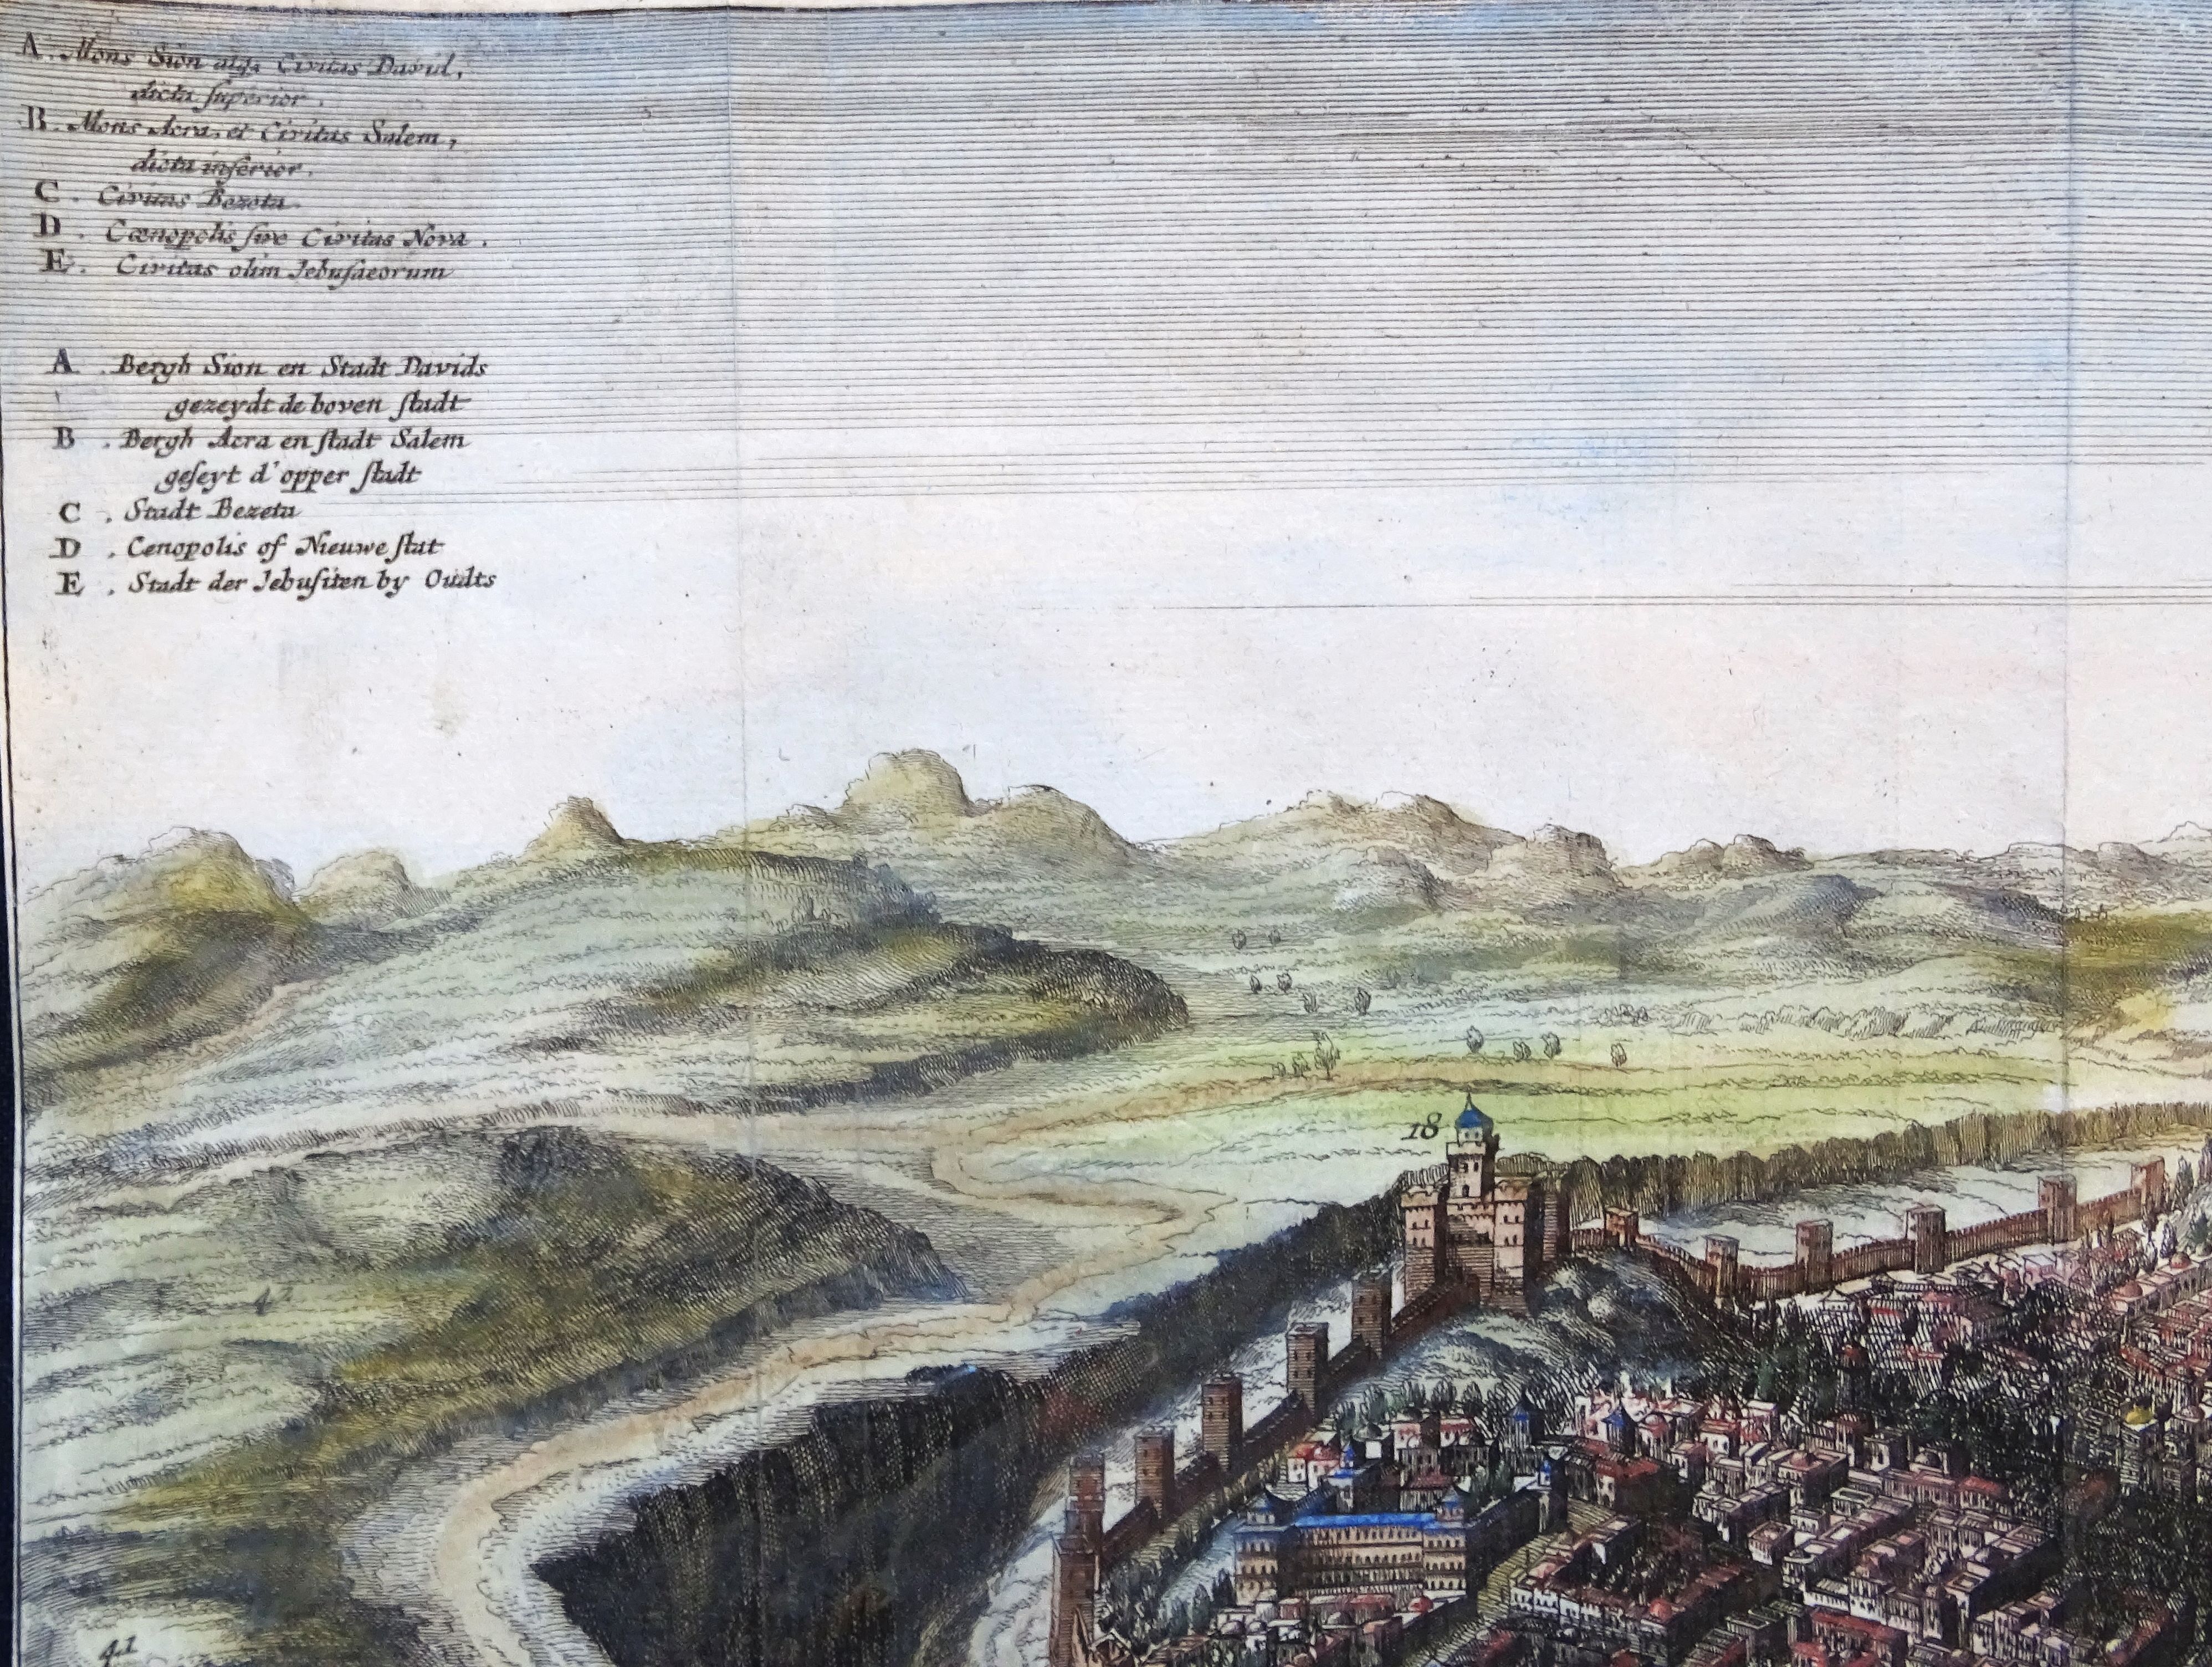 A. Mons Sion atq; Civitas David,
dicta ſuperior.
B. Mons Acra, et Civitas Salem,
dicta inferior.
C. Civitas Bezeta.
D. Cœnopolis ſive Civitas Nova.
E. Civitas olim Jebuſaeorum
A. Bergh Sion en Stadt Davids
gezeydt de boven ſtadt
B. Bergh Acra en ſtadt Salem
geſeyt d'opper ſtadt
C. Stadt Bezeta
D. Cenopolis of Nieuwe ſtat
E. Stadt der Jebuſiten by Oudts
18
42
41